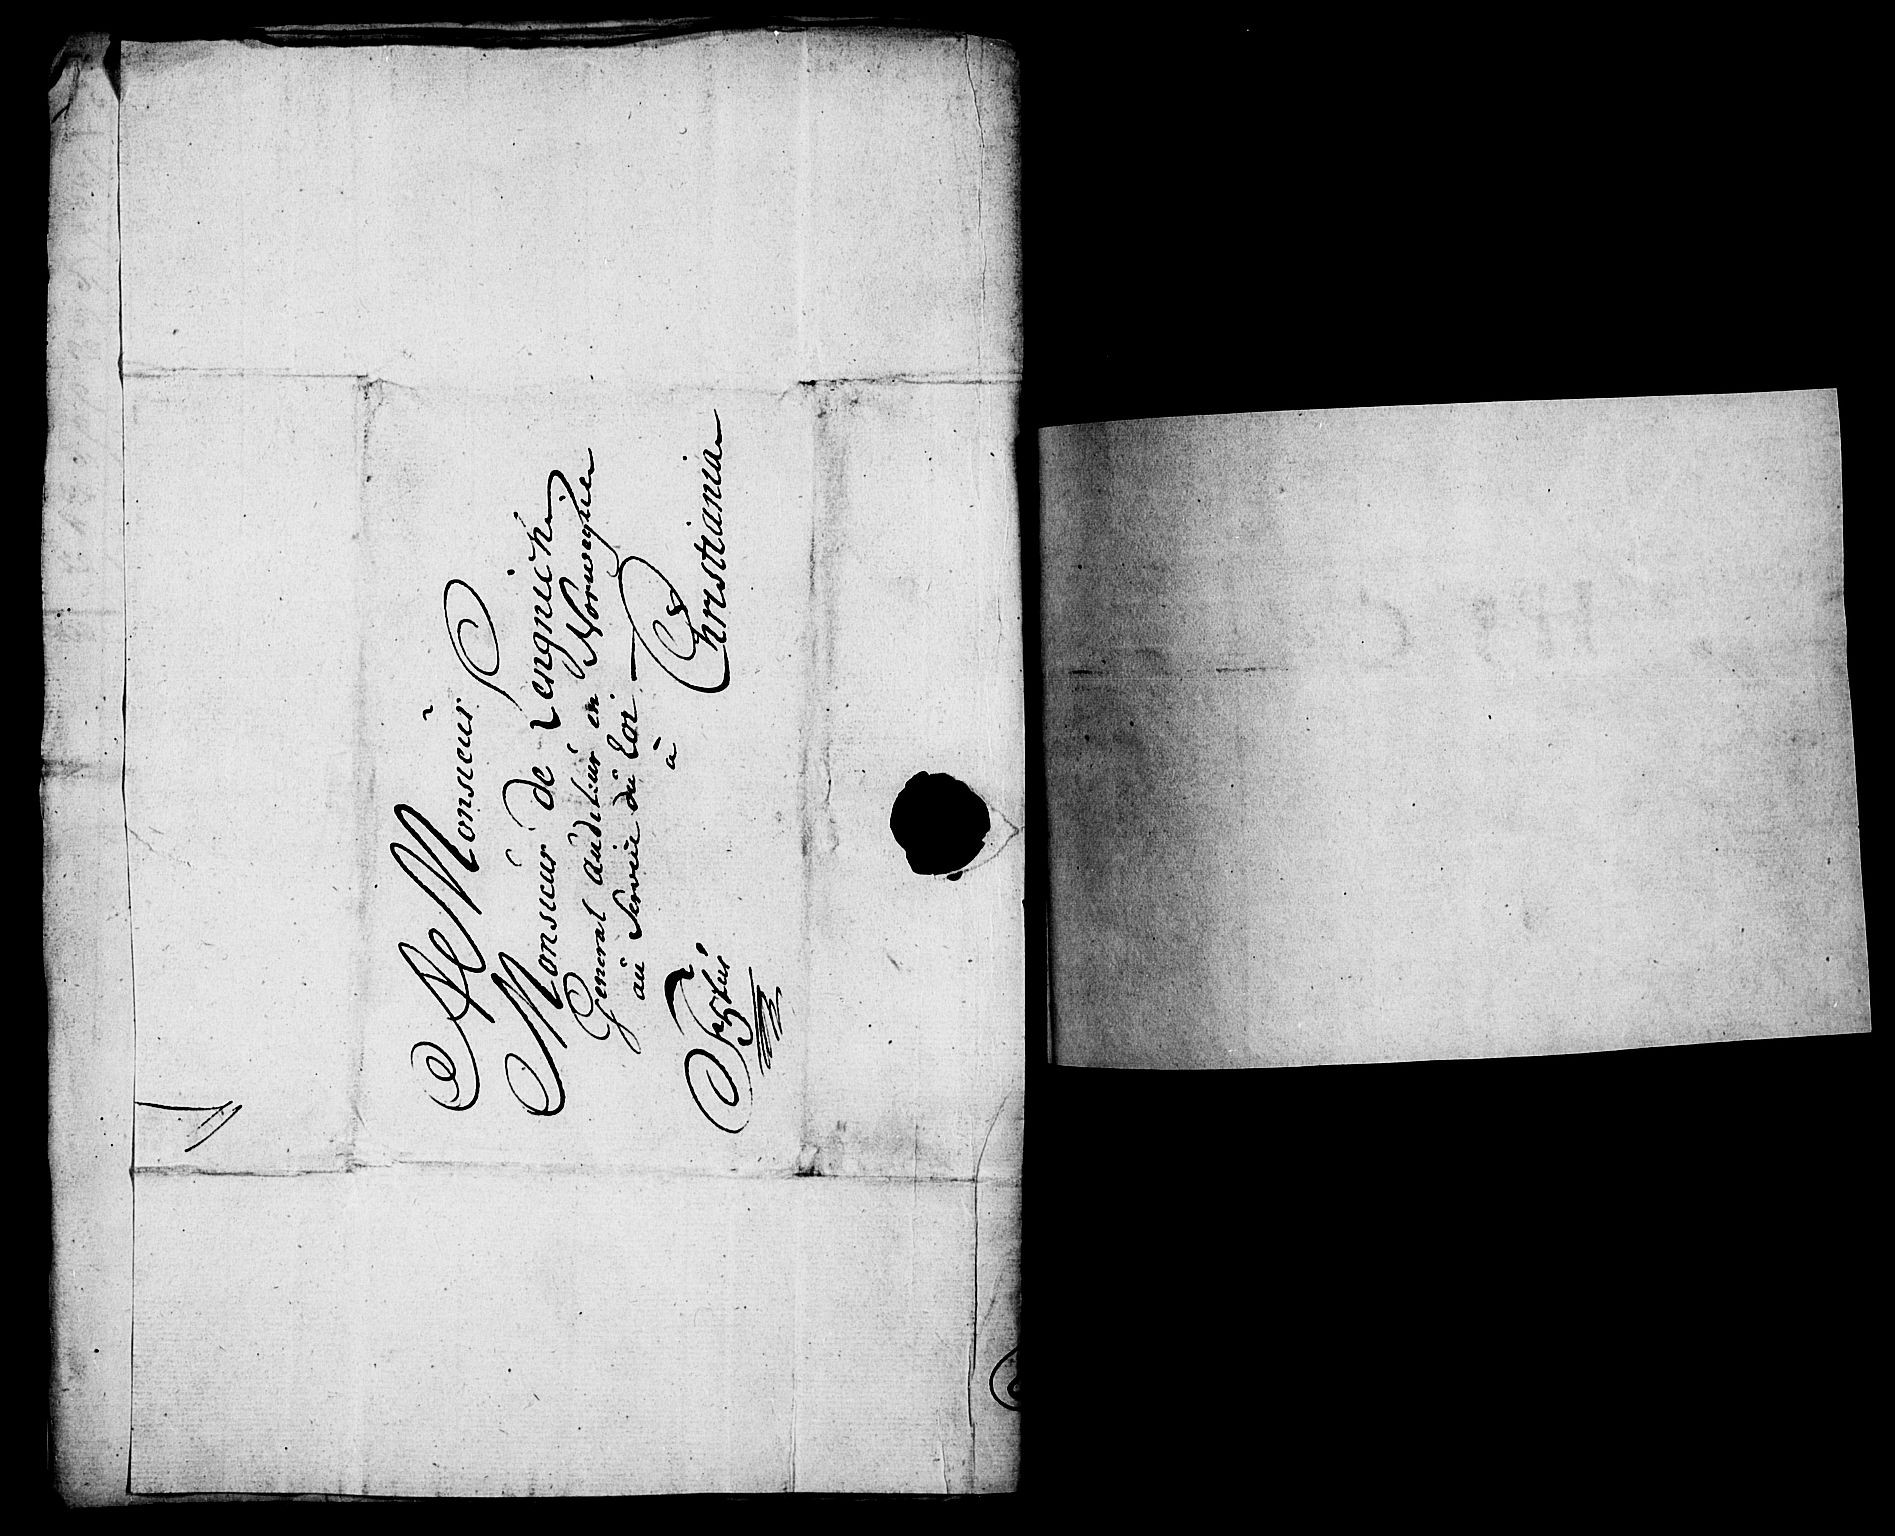 A Monsieur
Monsieur de Lengnich
General Auditeur en Norwegue
au Service du Roi
à
Christiania